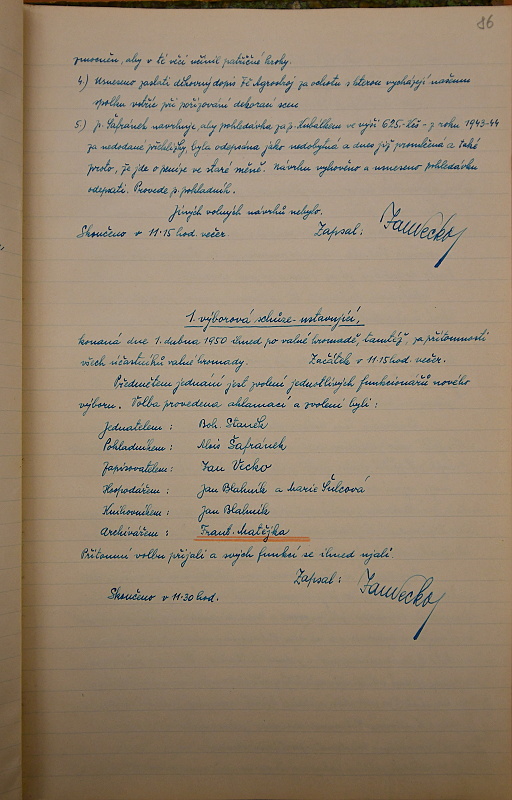 86
zmocněn, aby v té věci učinil patřičné kroky.
4.) Usneseno zaslati děkovný dopis fě Agrostroj za ochotu s kterou vycházejí našemu
spolku vstříc při pořizování dekorací scen
5.) p. Šafránek navrhuje, aby pohledávka za p. Kubálkem ve výši 625.-Kčs - z roku 1943-44
za nedodané přihlášky, byla odepsána jako nedobytná a dnes již promlčená a také
proto, že jde o peníze ve staré měně. Návrhu vyhověno a usneseno pohledávku
odepsati. Provede p. pokladník.
Jiných volných návrhů nebylo.
Skončeno v 11.15 hod. večer. Zapsal: Jan Vecko
1. výborová schůze - ustavující,
konaná dne 1. dubna 1950 ihned po valné hromadě, tamtéž, za přítomnosti
všech účastníků valné hromady. Začátek v 11.15 hod. večer.
Předmětem jednání jest zvolení jednotlivých funkcionářů nového
výboru. Volba provedena aklamací a zvoleni byli:
Jednatelem: Boh. Staněk
Pokladníkem: Alois Šafránek
Zapisovatelem: Jan Vecko
Hospodářem: Jan Blahník a Marie Šulcová
Knihovníkem: Jan Blahník
Archivářem: Frant. Matějka
Přítomní volbu přijali a svých funkcí se ihned ujali.
Zapsal: Jan Vecko
Skončeno v 11.30 hod.